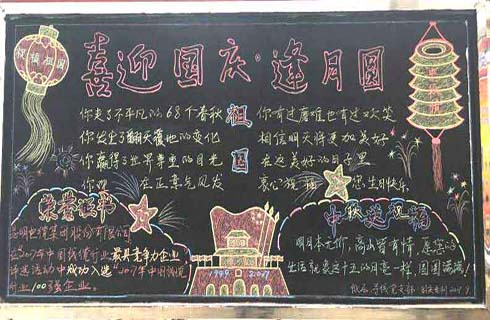 喜迎国庆·逢月圆
祝福祖国
祖国
你走了不平凡的68个春秋
你发生了翻天覆地的变化
你赢得了世界尊重的目光
你 正意气风发
你有过磨难也有过欢笑
相信明天将更加美好
在这美好的日子里
衷心祝福 您生日快乐
荣誉证书
昆明电缆集团股份有限公司
在"2017年中国线缆行业最具竞争力企业
评选活动中成功入选"2017年中国线缆
行业100强企业。
1949 2017
中秋送祝福
明月本无价,高山皆有情,愿您的
生活就象这十五的月亮一样,圆圆满满!